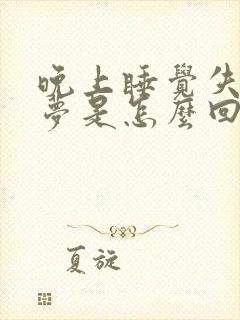 晚上睡覺失
夢是怎麼回
夏旋